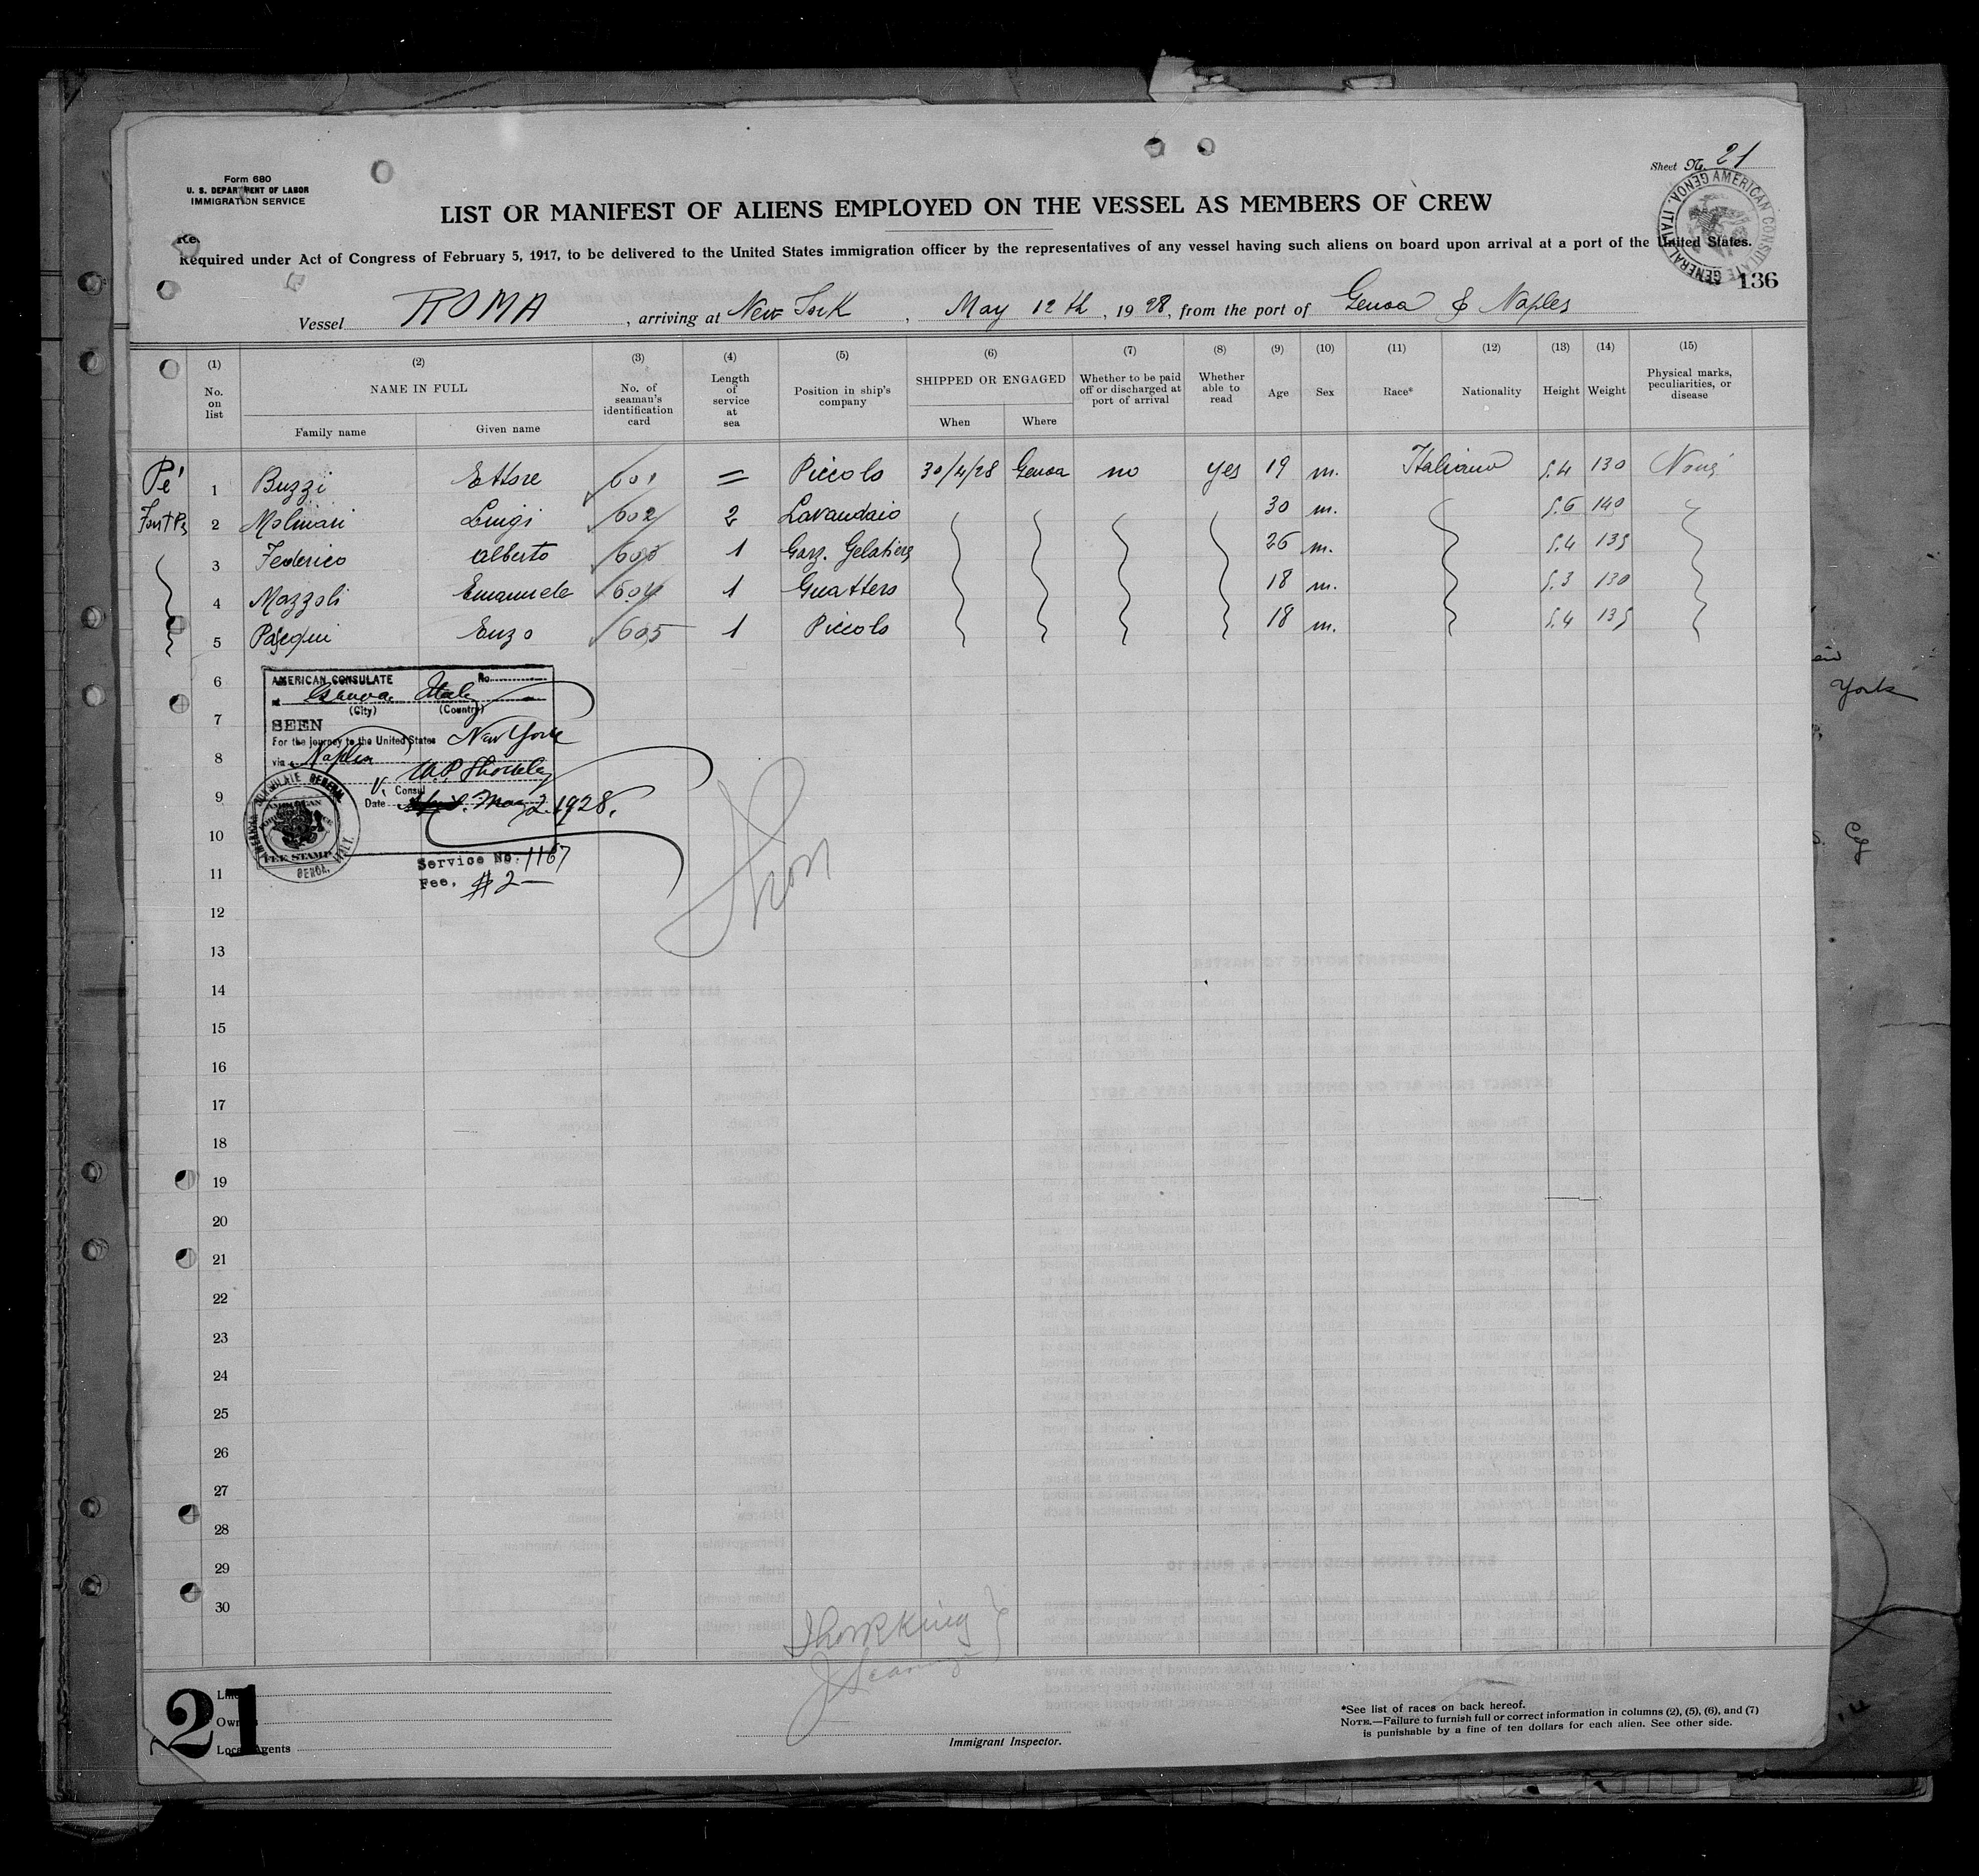 Form 680
U. S. DEPARTMENT OF LABOR
IMMIGRATION SERVICE
Sheet No. 21
AMERICAN CONSULATE GENERAL GENOA, ITALY
LIST OR MANIFEST OF ALIENS EMPLOYED ON THE VESSEL AS MEMBERS OF CREW
Required under Act of Congress of February 5, 1917, to be delivered to the United States immigration officer by the representatives of any vessel having such aliens on board upon arrival at a port of the United States.
136
Vessel ROMA, arriving at New York, May 12th, 1928, from the port of Genoa & Naples
(1) (2) (3) (4) (5) (6) (7) (8) (9) (10) (11) (12) (13) (14) (15)
No. on list NAME IN FULL No. of seaman's identification card Length of service at sea Position in ship's company SHIPPED OR ENGAGED Whether to be paid off or discharged at port of arrival Whether able to read Age Sex Race* Nationality Height Weight Physical marks, peculiarities, or disease
Family name Given name When Where
1 Buzzi Ettore 601 = Piccolo 30/4/28 Genoa no yes 19 m. Italiano 5.4 130
2 Molinari Luigi 602 2 Lavandaio 30 m. 5.6 140
3 Federico Alberto 1 Garz. Gelatiere 26 m. 5.4 135
4 Mazzoli Emanuele 604 1 Guattero 18 m. 5.3 130
5 Pasqui Enzo 605 1 Piccolo 18 m. 5.4 135
6
7
8
9
10
11
12
13
14
15
16
17
18
19
20
21
22
23
24
25
26
27
28
29
30
AMERICAN CONSULATE No.
at Genoa, Italy
(City) (Country)
SEEN
For the journey to the United States New York
via Naples
V. Consul
Date May 2 1928.
FEE STAMP
Service No. 1167
Fee, $2—
York
21
Line
Owners
Local Agents
Immigrant Inspector.
*See list of races on back hereof.
NOTE.—Failure to furnish full or correct information in columns (2), (5), (6), and (7)
is punishable by a fine of ten dollars for each alien. See other side.